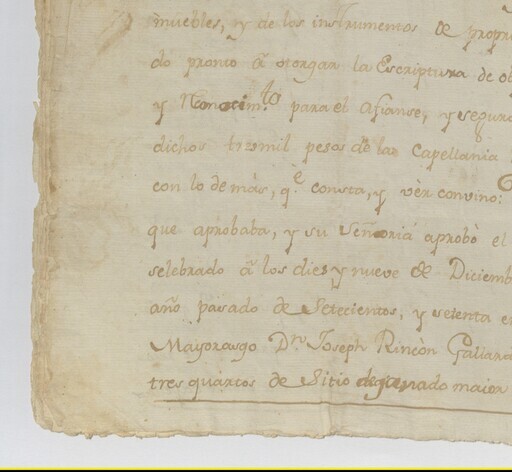 inmuebles, y de los instrumentos de propr
do pronto â otorgar la Escriptura de ob
y Renocim.to para el Afianse, y segura
dichos tresmil pesos de la Capellania
con lo de más, q.e consta, y vèr convino:
que aprobaba, y su Señoria aprobò el
selebrado â los dies y nueve de Diciemb
año pasado de Setecientos, y setenta
Mayorasgo Dn Joseph Rincòn Gallard
tres quartos de Sitio de ganado maior